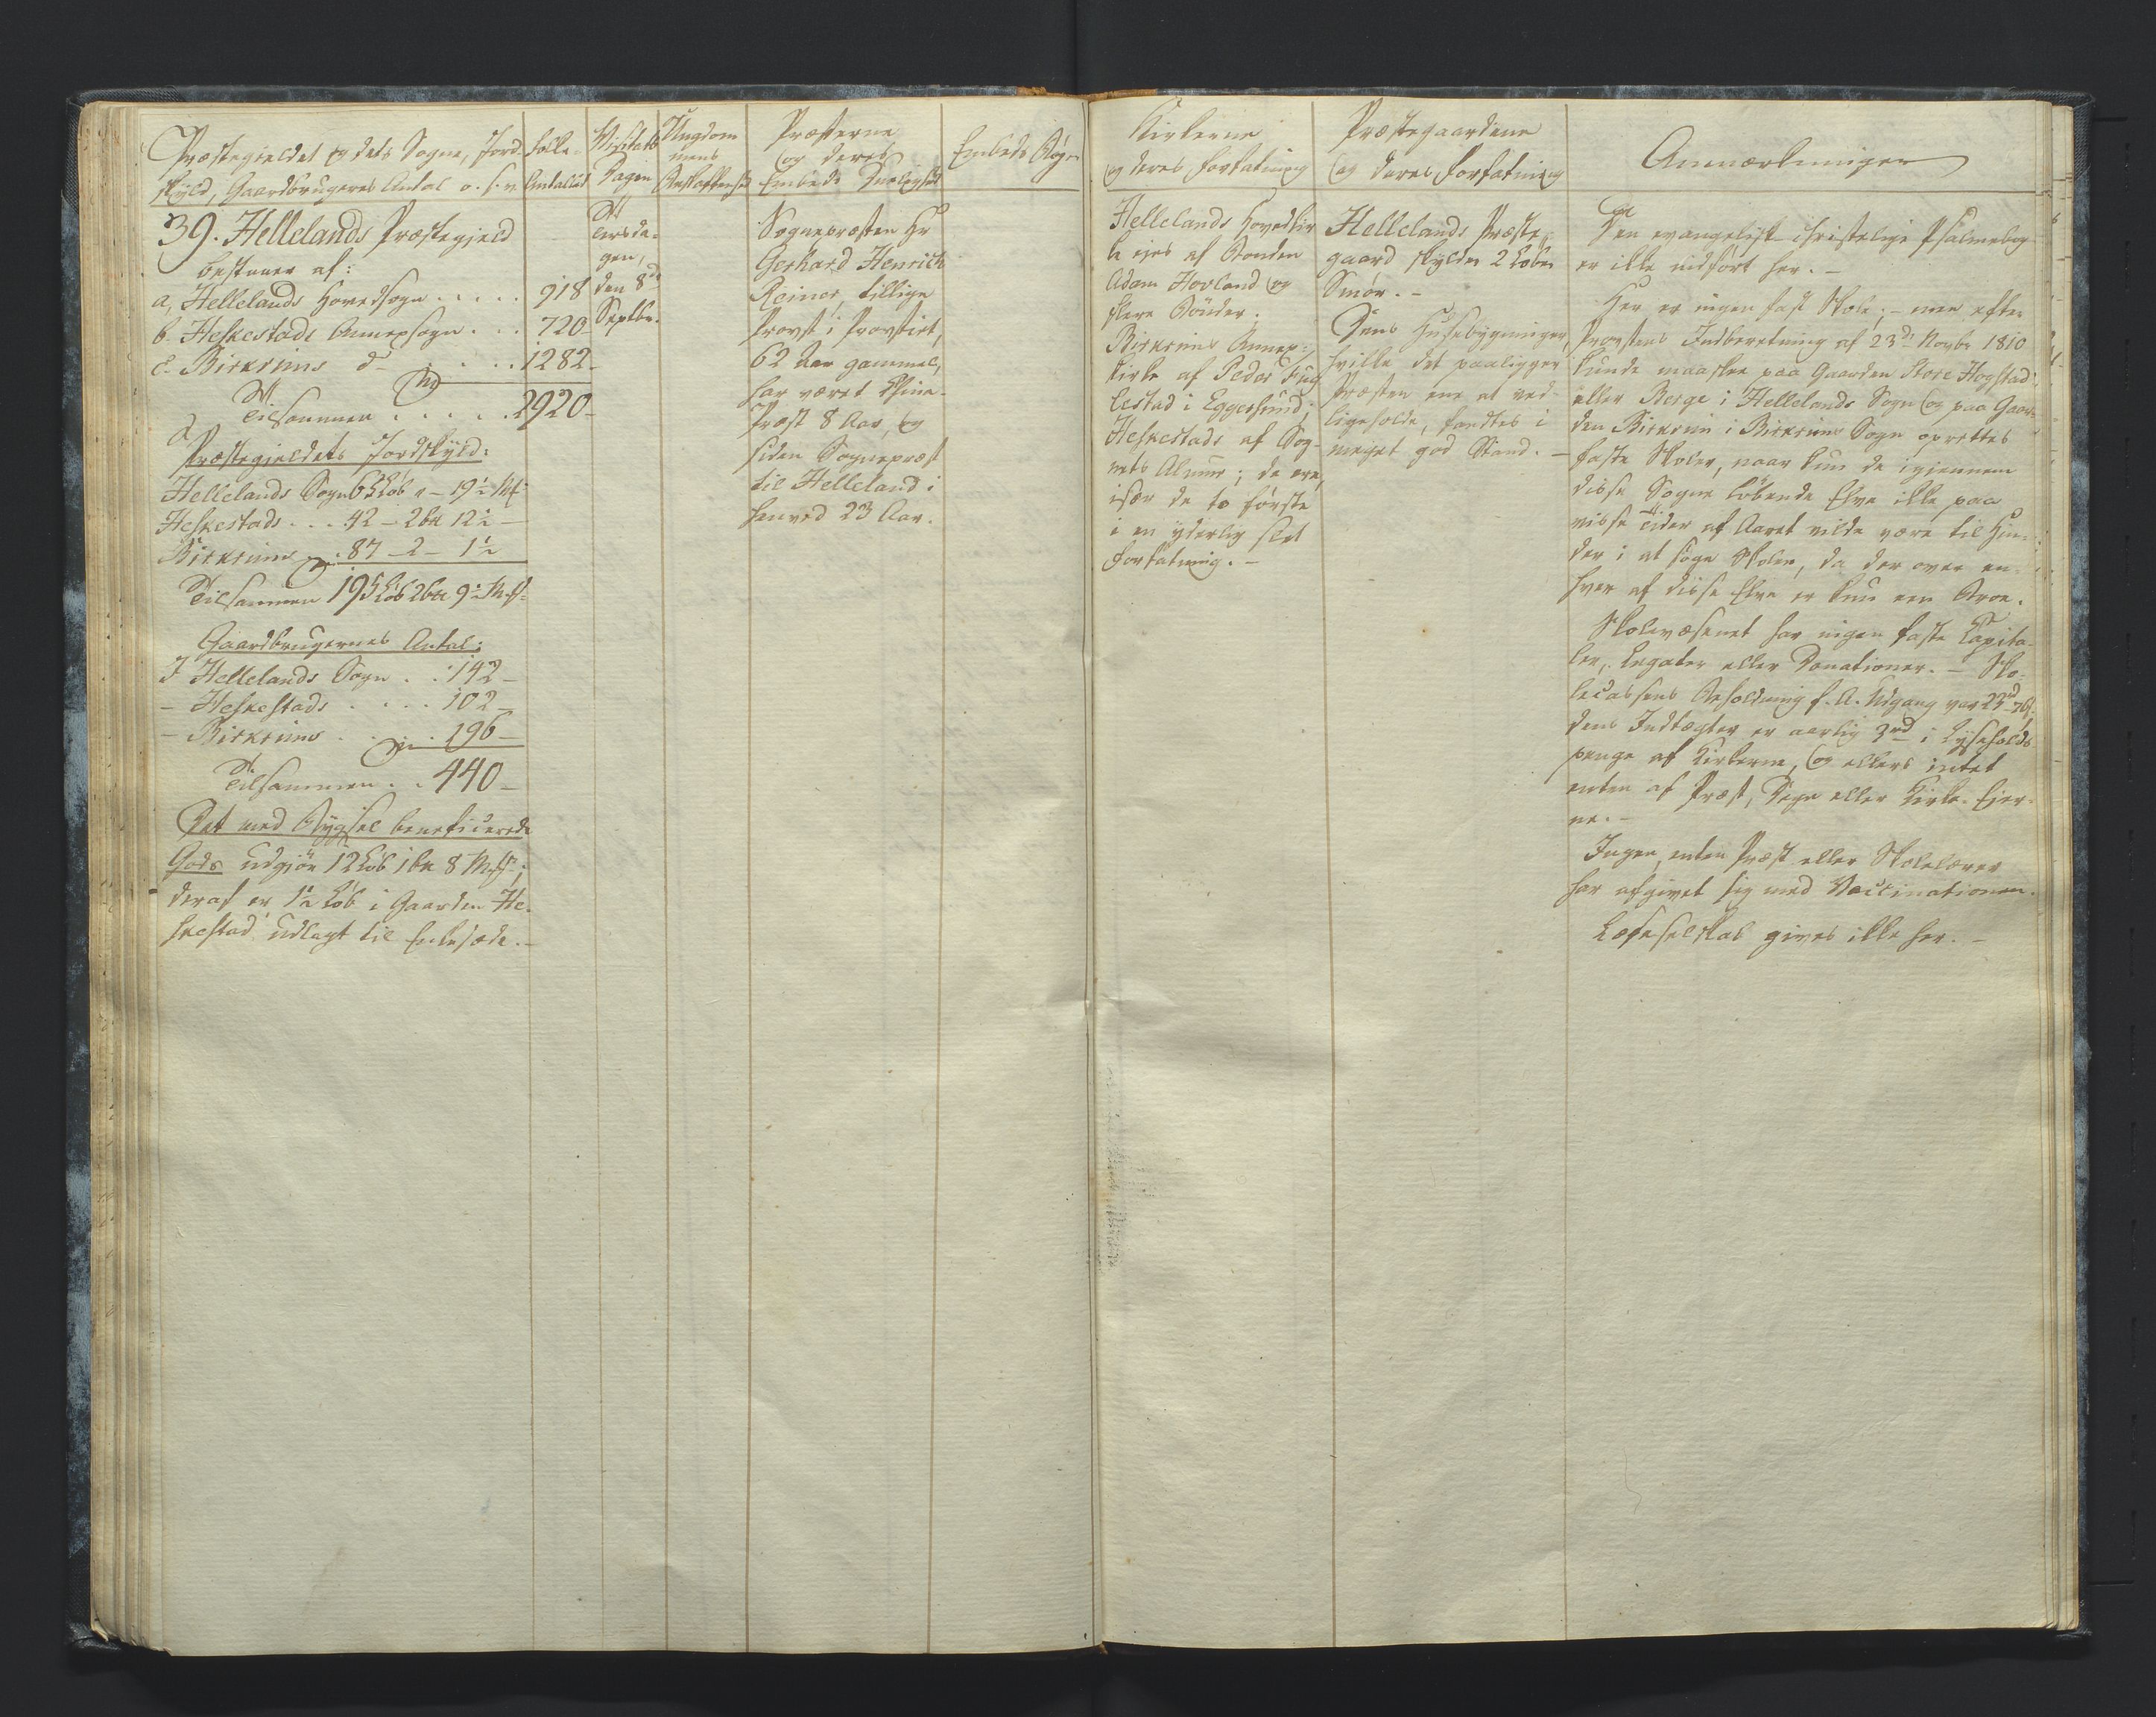 Præstegieldet og dets Sogne, Jord-
skyld, Gaardbrugeres Antal o. s. v.
Folke-
Antallet
Visitats
Dagen
Ungdom-
mens
Beskaffenhed
Præsterne
og deres
Embeds Duelighed
Embeds Bøger
39. Hellelands Præstegjeld
bestaaer af:
a, Hellelands Hovedsogn . . . . . 918
b. Heskestads Annexsogn . . . 720-
c. Birkrims do . . . . 1282-
Tilsammen . . . . . 2920-
Præstegjeldets Jordskyld:
Hellelands Sogn 65 Løb " - 19½ Mk
Heskestads . . . 42 - 2 bn 12½ -
Birkrims . 87 - 2 - 1½
Tilsammen 195 Løb 2 bn 9½ Mk
Gaardbrugernes Antal:
I Hellelands Sogn . . 142 -
- Heskestads . . . . 102 -
- Birkrims . . . . 196 -
Tilsammen . . 440 -
Det med Bygsel beneficerede
Gods udgjør 12 Løb 1 bn 8 Mk;
deraf er 1½ Løb i Gaarden He-
skestad udlagt til Enkesæde. -
Tirsda-
gen,
den 8de
Septbr.
Sognepræsten Hr
Gerhard Henrich
Reiner, tillige
Provst i Provstiet,
62 Aar gammel,
har været
Præst 8 Aar, og
siden Sognepræst
til Helleland i
henved 23 Aar.
Kirkerne
og deres Forfatning
Præstegaardene
og deres Forfatning
Anmærkninger
Hellelands Hovedkir-
ke ejes af Bonden
Adam Hovland og
flere Bønder.
Birkrims Annex-
kirke af Peder Fug-
lestad i Eggersund;
Heskestads af Sog-
nets Almue; de ere,
især de to første
i en yderlig slet
Forfatning. -
Hellelands Præste-
gaard skylder 2 Løber
Smør. -
Dens Husebygninger,
hvilke det paaligger
Præsten ene at ved-
ligeholde, fandtes i
meget god Stand. -
Den evangelisk christelige Psalmebog
er ikke indført her. -
Her er ingen fast Skole; - men efter
Provstens Indberetning af 23de Novbr 1810
kunde maaskee paa Gaarden Store Hogstad
eller Berge i Hellelands Sogn og paa Gaar-
den Birkrim i Birkrims Sogn oprettes
faste Skoler, naar kun de igjennem
disse Sogne løbende Elve ikke paa
visse Tider af Aaret vilde være til Hin-
der i at søge Skolen, da der over en-
hver af disse Elve er kun een Broe.
Skolevæsenet har ingen faste Kapita-
ler, Legater eller Donationer. - Sko-
lecassens Beholdning f. A. Udgang var 23 rd 76 s.
dens Indtægter er aarlig 3 rd i Lyseholds-
penge af Kirkerne, og ellers intet
enten af Præst, Degn eller Kirke-Eier-
ne. -
Ingen, enten Præst eller Skolelærer
har afgivet sig med Vaccinationen.
Læseselskab gives ikke her. -